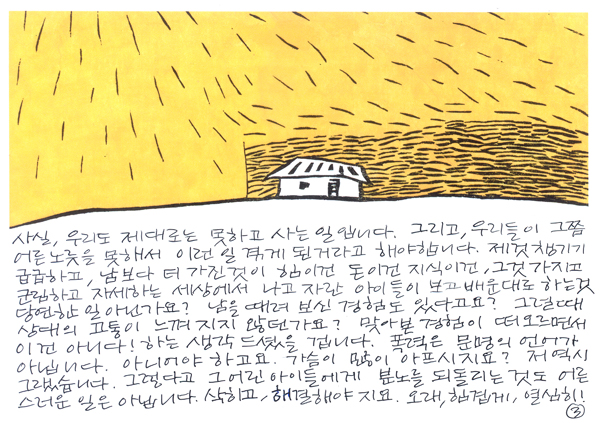 사실, 우리도 제대로는 못하고 사는 일 입니다. 그리고, 우리들이 그쯤
어른노릇을 못해서 이런 일 겪게 된거라고 해야합니다. 제것챙기기
급급하고, 남보다 더 가진것이 힘이건 돈이건 지식이건, 그것 가지고
군림하고 자세하는 세상에서 나고 자란 아이들이 보고 배운대로 하는것
당연한 일 아닌가요? 남을 때려 보신 경험도 있다고요? 그럴때
상대의 고통이 느껴 지지 않던가요? 맞아본 경험이 떠오르면서
이건 아니다! 하는 생각 드셨을 겁니다. 폭력은 문명의 언어가
아닙니다. 아니어야 하고요. 가슴이 많이 아프시지요? 저 역시
그랬습니다. 그렇다고 그 어린 아이들에게 분노를 되돌리는 것도 어른
스러운 일은 아닙니다. 삭히고, 해결해야 지요. 오래, 힘겹게, 열심히!
③